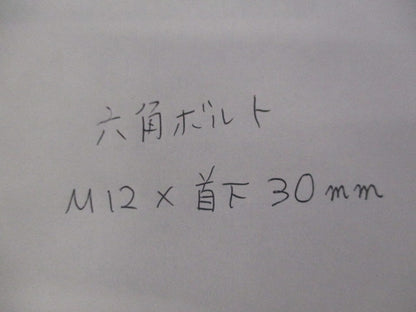 六角ボルト
M12×首下30mm